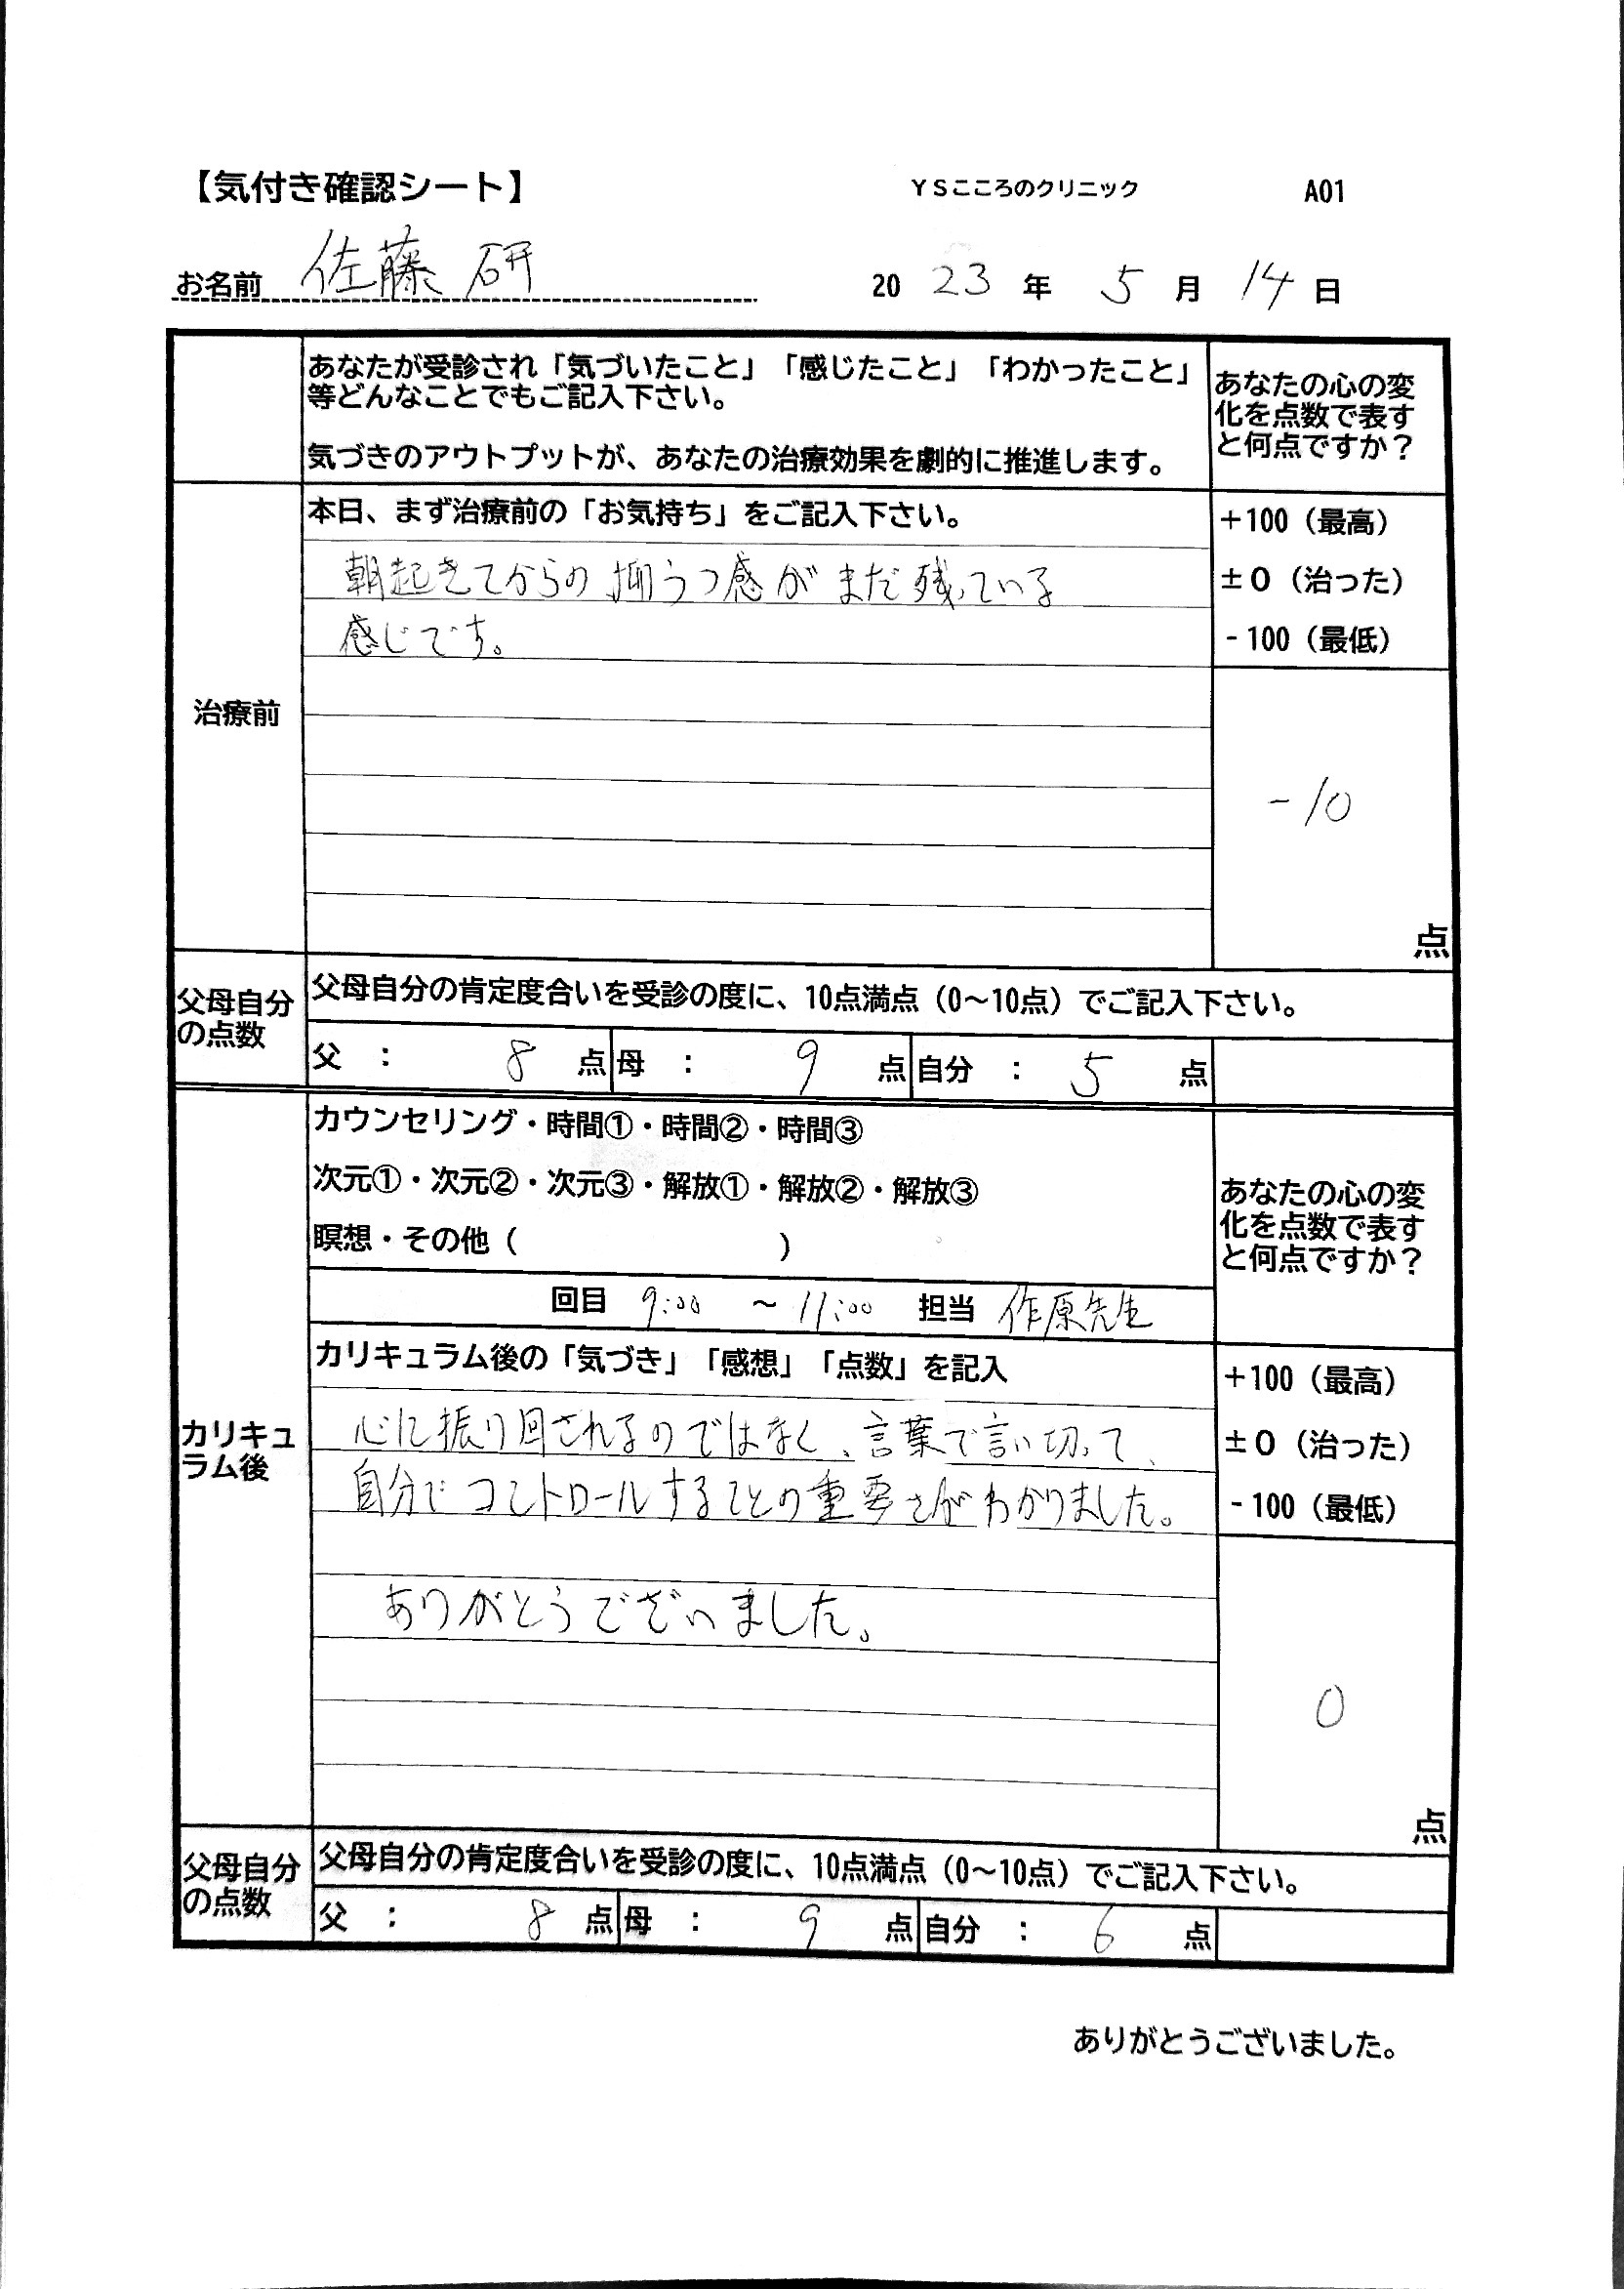 【気付き確認シート】 YSこころのクリニック A01
お名前 佐藤 研 2023年5月14日
あなたが受診され「気づいたこと」「感じたこと」「わかったこと」
等どんなことでもご記入下さい。
気づきのアウトプットが、あなたの治療効果を劇的に推進します。
あなたの心の変
化を点数で表す
と何点ですか？
治療前
本日、まず治療前の「お気持ち」をご記入下さい。
朝起きてからの抑うつ感がまだ残っている
感じです。
+100（最高）
±0（治った）
-100（最低）
-10
点
父母自分
の点数
父母自分の肯定度合いを受診の度に、10点満点（0～10点）でご記入下さい。
父 ： 8 点 母 ： 9 点 自分 ： 5 点
カリキュ
ラム後
カウンセリング・時間①・時間②・時間③
次元①・次元②・次元③・解放①・解放②・解放③
瞑想・その他（ ）
回目 9:00 ～ 11:00 担当 作原先生
あなたの心の変
化を点数で表す
と何点ですか？
カリキュラム後の「気づき」「感想」「点数」を記入
心に振り回されるのではなく、言葉で言い切って、
自分でコントロールすることの重要さがわかりました。
ありがとうございました。
+100（最高）
±0（治った）
-100（最低）
0
点
父母自分
の点数
父母自分の肯定度合いを受診の度に、10点満点（0～10点）でご記入下さい。
父 ： 8 点 母 ： 9 点 自分 ： 6 点
ありがとうございました。